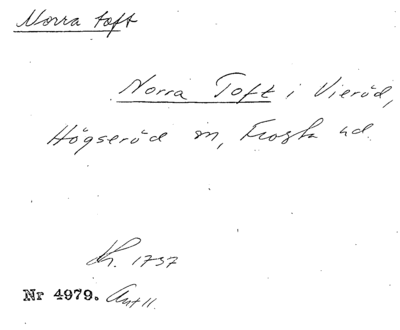 Norra toft
Norra Toft i Vieröd,
Högseröd sn, Frosta hd.
Kh. 1757
Nr 4979. Ant 11.